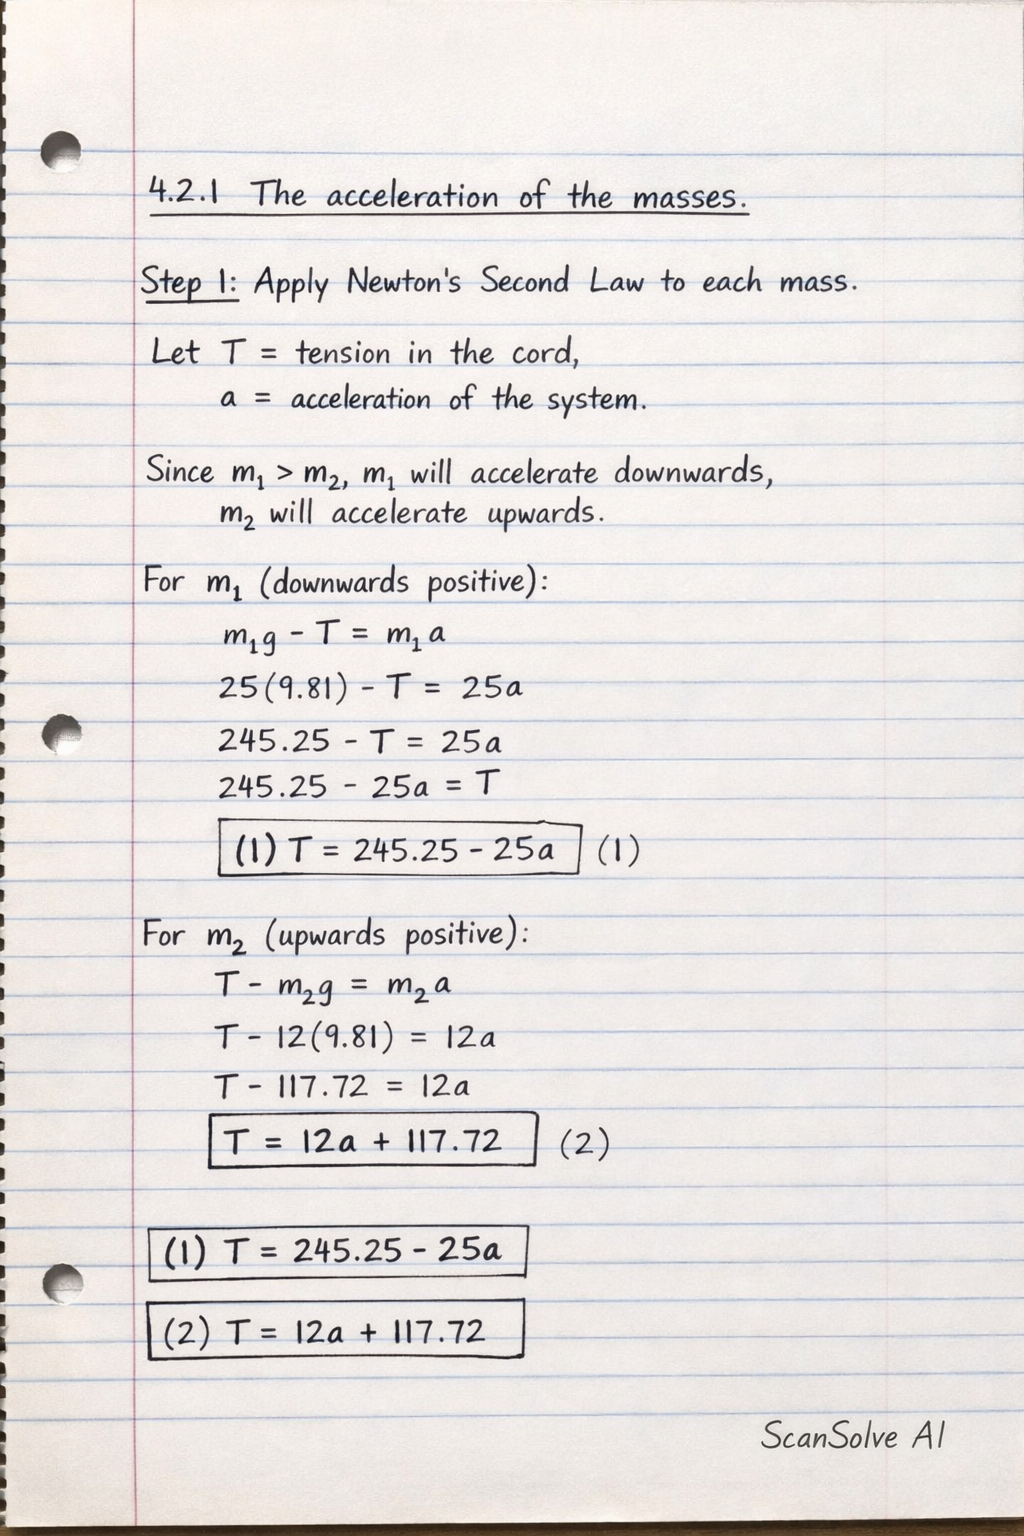 4.2.1 The acceleration of the masses.
Step 1: Apply Newton's Second Law to each mass.
Let T = tension in the cord,
a = acceleration of the system.
Since m₁ > m₂, m₁ will accelerate downwards,
m₂ will accelerate upwards.
For m₁ (downwards positive):
m₁g - T = m₁a
25(9.81) - T = 25a
245.25 - T = 25a
245.25 - 25a = T
(1) T = 245.25 - 25a (1)
For m₂ (upwards positive):
T - m₂g = m₂a
T - 12(9.81) = 12a
T - 117.72 = 12a
T = 12a + 117.72 (2)
(1) T = 245.25 - 25a
(2) T = 12a + 117.72
ScanSolve AI